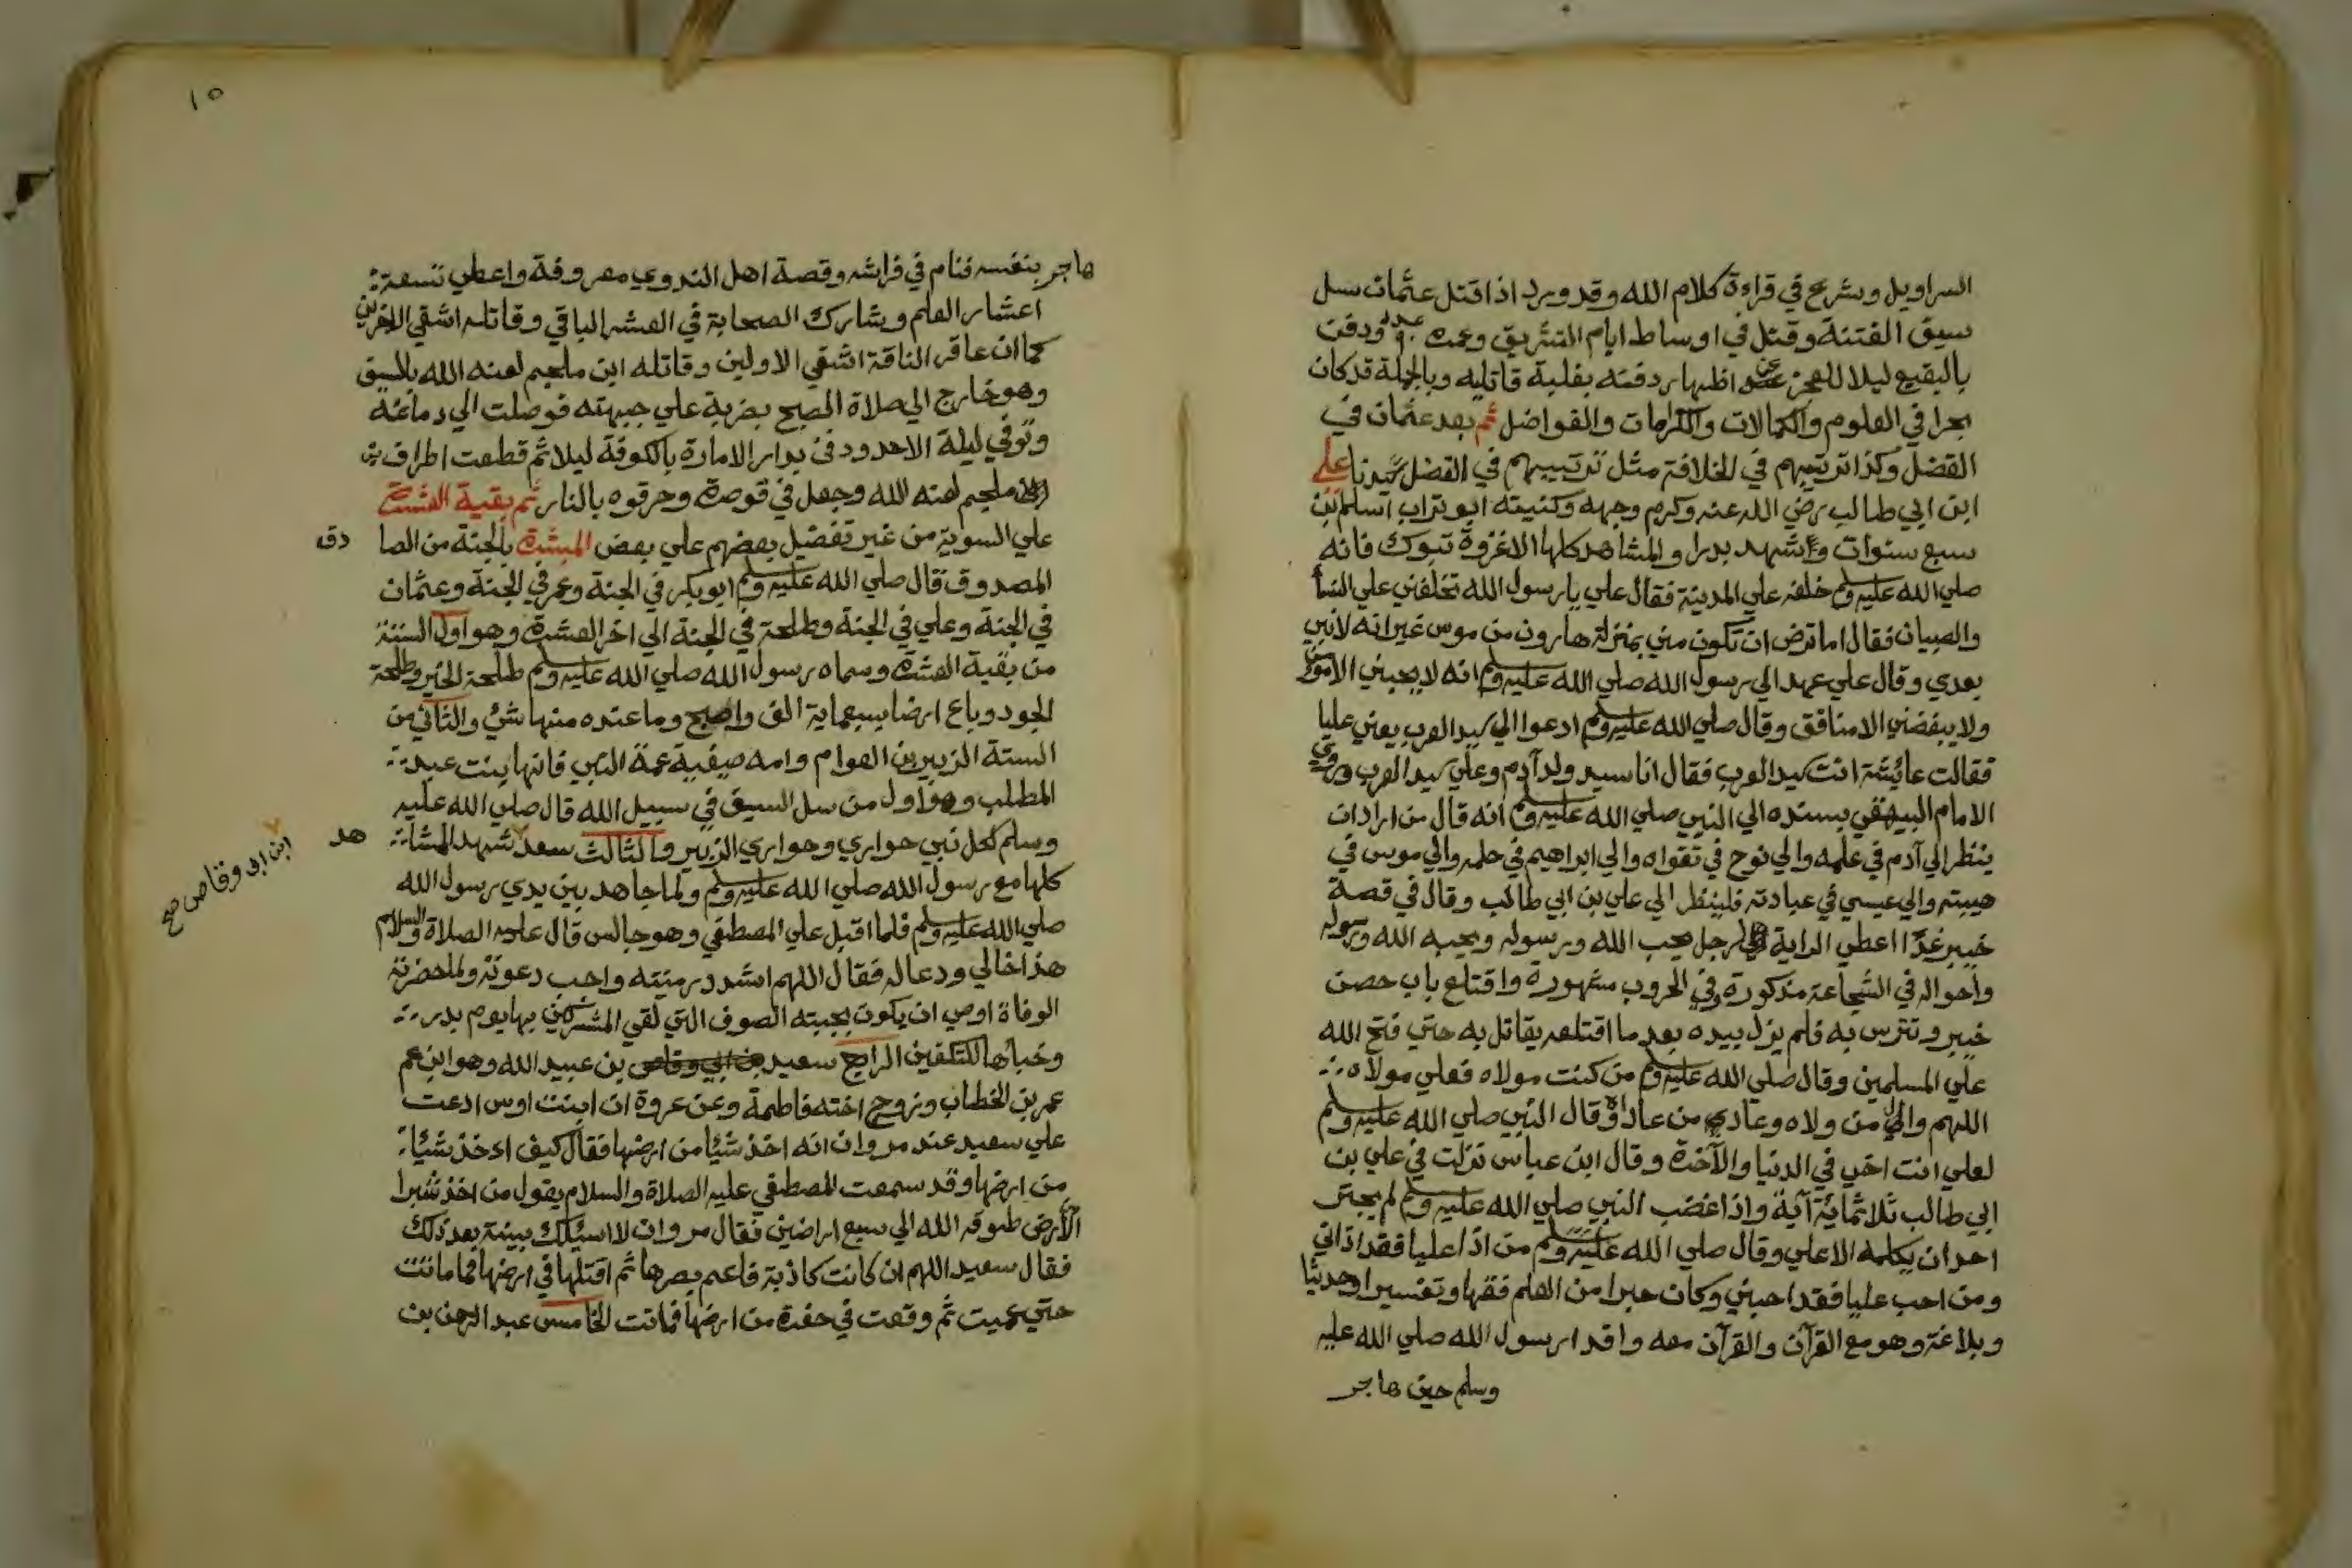 السراويل وشرع في قراءة كلام الله وقد ورد اذا قتل عثمان سل
سيف الفتنة وقتل في اوساط ايام التشريق وعمره ودفن
بالبقيع ليلا للعجز عن اظهار دفنه بغلبة قاتليه وبالجملة قد كان
بحرا في العلوم والكمالات والكرامات والفواضل ثم بعد عثمان في
الفضل وكذا ترتيبهم في الخلافة مثل ترتيبهم في الفضل سيدنا علي
ابن ابي طالب رضي الله عنه وكرم وجهه وكنيته ابو تراب اسلم ابن
سبع سنوات وشهد بدرا والمشاهد كلها الا غزوة تبوك فانه
صلي الله عليه وسلم خلفه علي المدينة فقال علي يا رسول الله تخلفني علي النسا
والصبيان فقال اما ترض ان تكون مني بمنزلة هارون من موسي غير انه لا نبي
بعدي وقال علي عهد الي رسول الله صلي الله عليه وسلم انه لا يحبني الا مومن
ولا يبغضني الا منافق وقال صلي الله عليه وسلم ادعوا الي سيد العرب يعني عليا
فقالت عائشة انت سيد العرب فقال انا سيد ولد آدم وعلي سيد العرب وروي
الامام البيهقي بسنده الي النبي صلي الله عليه وسلم انه قال من اراد ان
ينظر الي آدم في علمه والي نوح في تقواه والي ابراهيم في حلمه والي موسي في
هيبته والي عيسي في عبادته فلينظر الي علي بن ابي طالب وقال في قصة
خيبر غدا اعطي الراية لرجل يحب الله ورسوله ويحبه الله ورسوله
واحواله في الشجاعة مذكورة وفي الحروب مشهورة واقتلع باب حصن
خيبر وتترس به فلم يزل بيده بعد ما اقتلعه يقاتل به حتي فتح الله
علي المسلمين وقال صلي الله عليه وسلم من كنت مولاه فعلي مولاه
اللهم وال من ولاه وعادي من عاداه وقال النبي صلي الله عليه وسلم
لعلي انت اخي في الدنيا والآخرة وقال ابن عباس نزلت في علي بن
ابي طالب ثلاثمائة آية واذا غضب النبي صلي الله عليه وسلم لم يجتر
احد ان يكلمه الا علي وقال صلي الله عليه وسلم من اذا عليا فقد اذاني
ومن احب عليا فقد احبني وكان حبرا من العلم فقها وتفسيرا وحديثا
وبلاغة وهو مع القرآن والقرآن معه وافدا رسول الله صلي الله عليه
وسلم حين هاجر
١٥
هاجر بنفسه فنام في فراشه وقصة اهل الندوي معروفة واعطي تسعة
اعشار العلم وشارك الصحابة في العشر الباقي وقاتله اشقي الاخرين
كما ان عاقر الناقة اشقي الاولين وقاتله ابن ملجم لعنه الله بالسيف
وهو خارج الي صلاة الصبح بضربة علي جبهته فوصلت الي دماغه
وتوفي ليلة الاحد ودفن بدار الامارة بالكوفة ليلا ثم قطعت اطراف
ابن ملجم لعنه الله وجعل في قوصرة وحرقوه بالنار ثم بقية العشرة
علي السوية من غير تفضيل بعضهم علي بعض المبشرة بالجنة من الصا دق
المصدوق فقال صلي الله عليه وسلم ابو بكر في الجنة وعمر في الجنة وعثمان
في الجنة وعلي في الجنة وطلحة في الجنة الي اخر العشرة وهو اول الستة
من بقية العشرة وسماه رسول الله صلي الله عليه وسلم طلحة الخير وطلحة
الجود وباع ارضا بسبعماية الف واصبح وما عنده منها شئ والثاني من
الستة الزبير بن العوام وامه صفية عمة النبي فانها بنت عبد
المطلب وهو اول من سل السيف في سبيل الله قال صلي الله عليه
وسلم لكل نبي حواري وحواري الزبير والثالث سعد شهد المشا هد
ابن ابي وقاص صح
كلها مع رسول الله صلي الله عليه وسلم ولما جاهد بين يدي رسول الله
صلي الله عليه وسلم فلما اقبل علي المصطفي وهو جالس قال عليه الصلاة والسلام
هذا خالي ودعا له فقال اللهم اشدد رميته واجب دعوته ولما حضرته
الوفاة اوصي ان يكون بجبته الصوف التي لقي المشركين بها يوم بدر
وخباها للتكفين الرابع سعيد بن ابي وقاص بن عبيد الله وهو ابن عم
عمر بن الخطاب وتزوج اخته فاطمة وعن عروة ان ابنت اوس ادعت
علي سعيد عند مروان انه اخذ شيئا من ارضها فقال كيف اخذ شيئا
من ارضها وقد سمعت المصطفي عليه الصلاة والسلام يقول من اخذ شبرا
الارض طوقه الله الي سبع اراضين فقال مروان لا اسئلك بينة بعد ذلك
فقال سعيد اللهم ان كانت كاذبة فاعم بصرها ثم اقتلها في ارضها فما ماتت
حتي عميت ثم وقعت في حفرة من ارضها فماتت الخامس عبد الرحمن بن